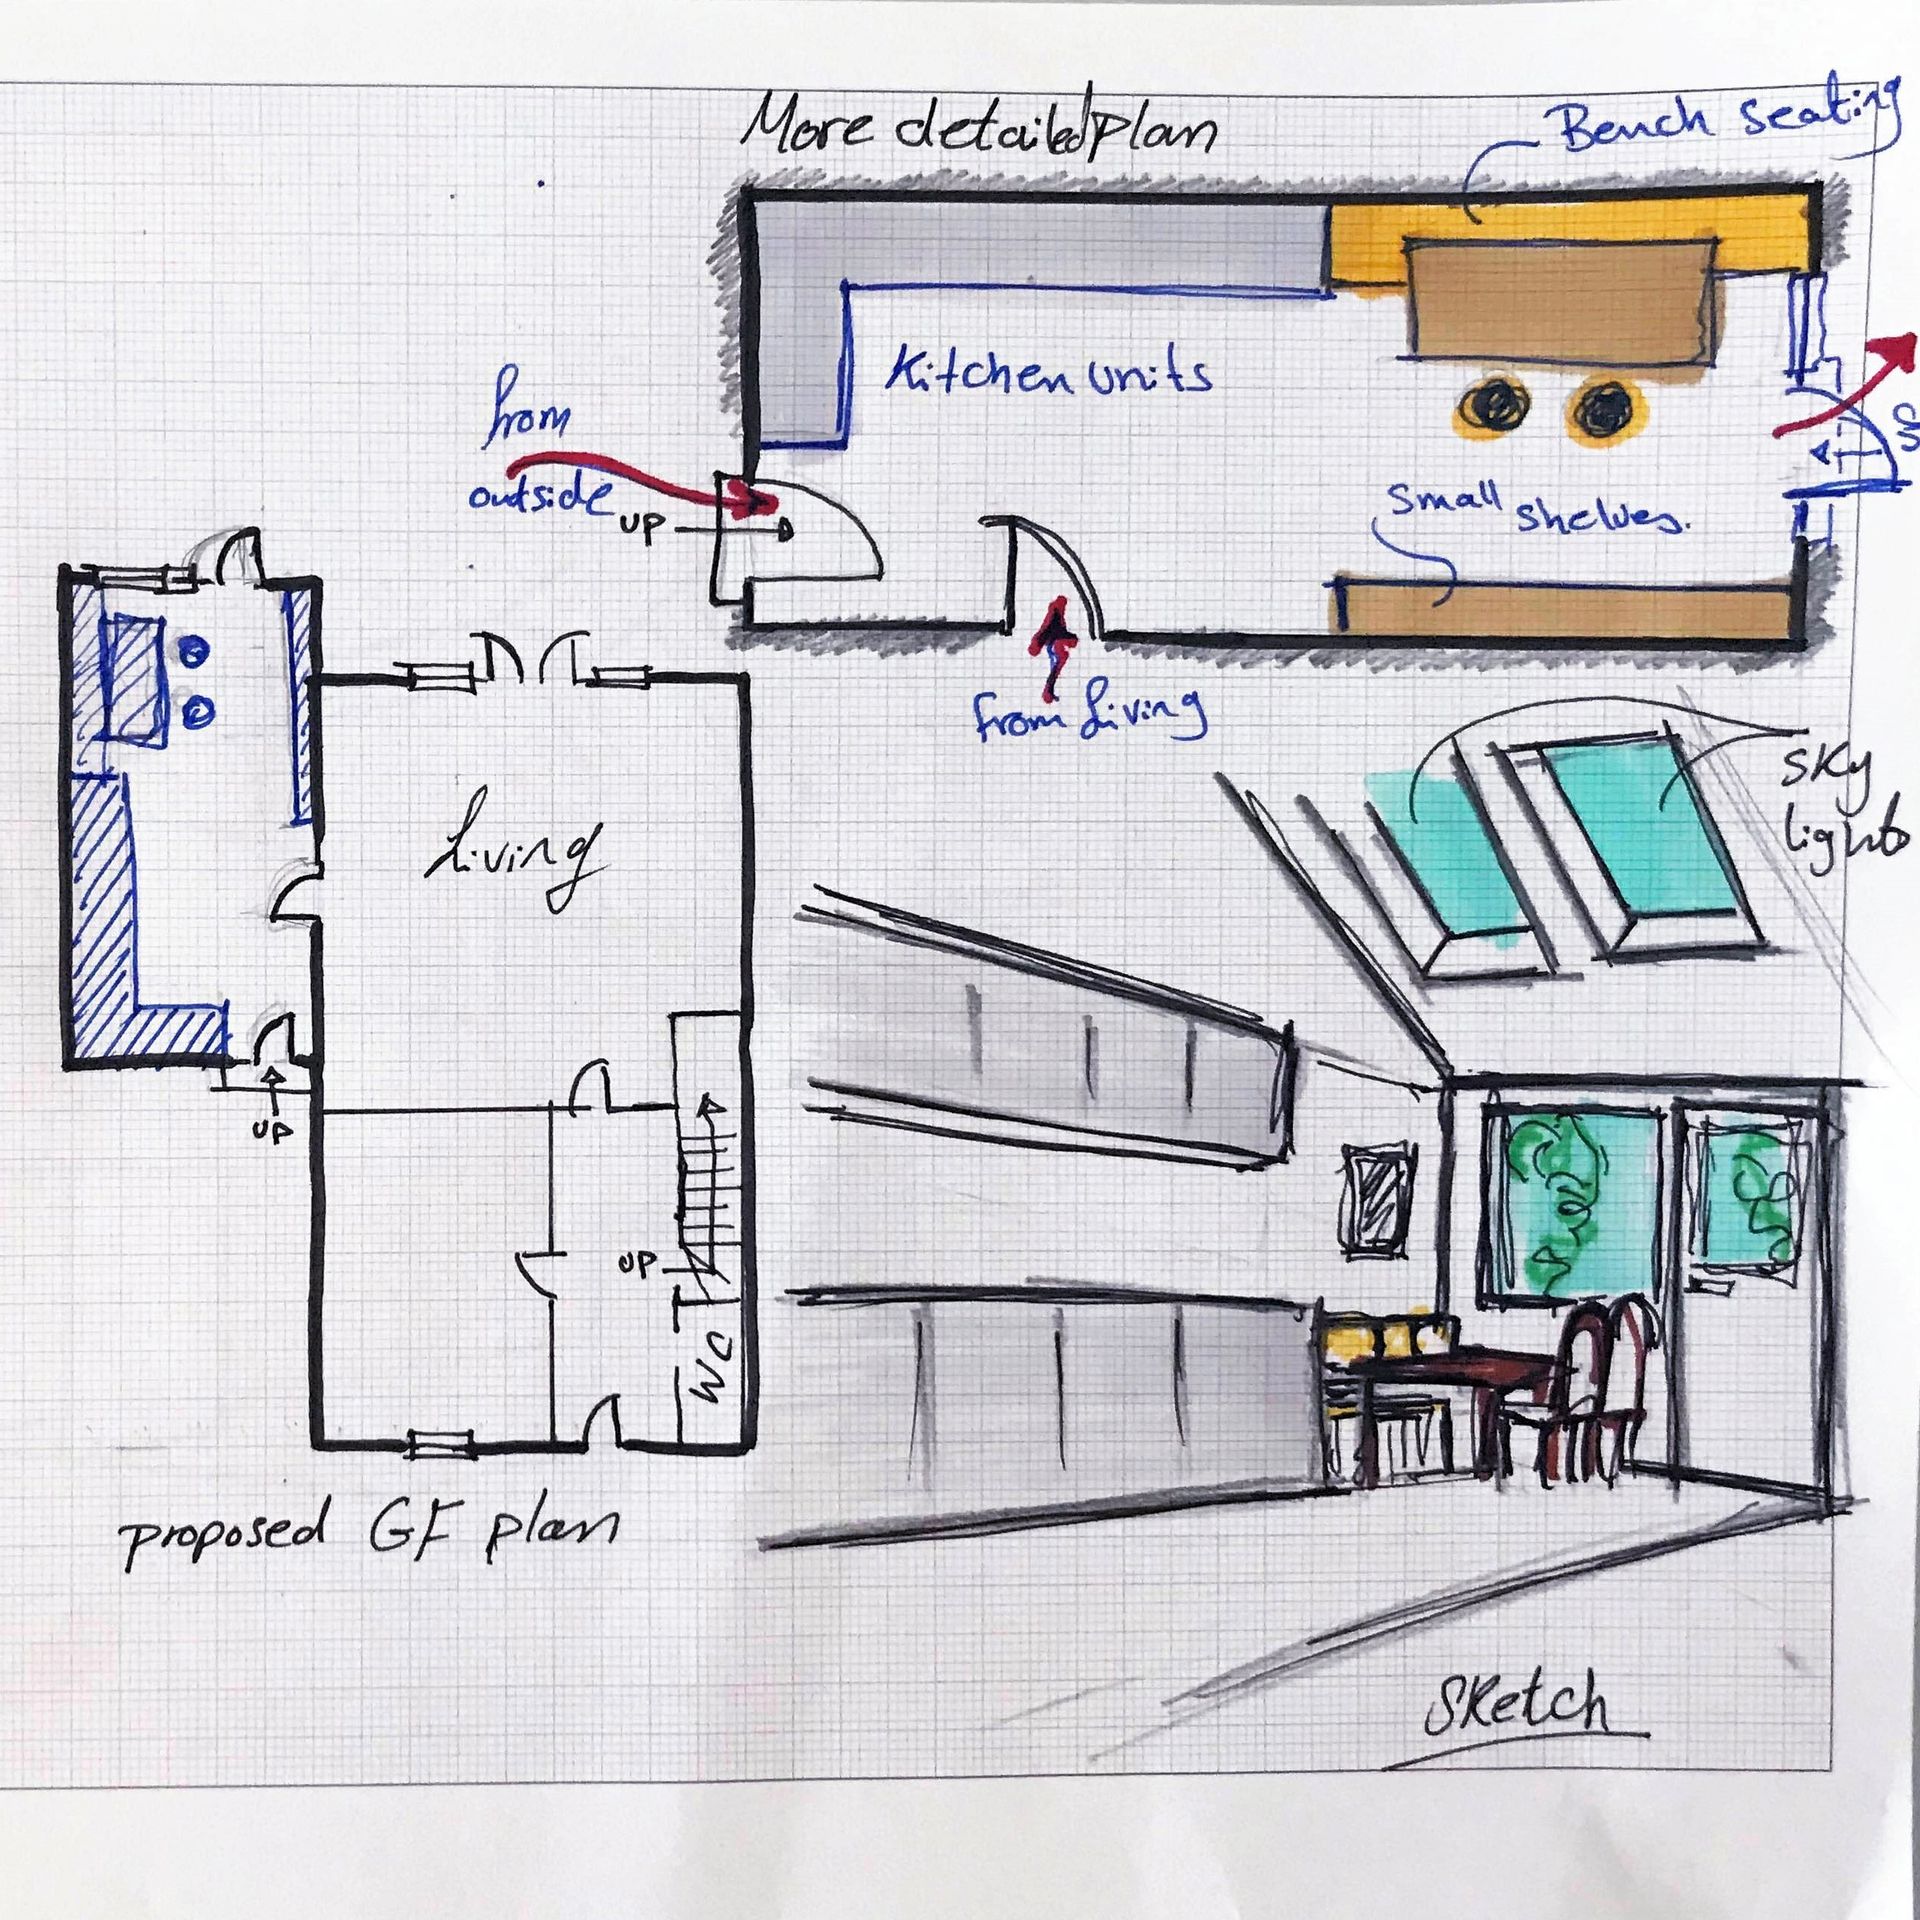 More detailed plan
Bench seating
Kitchen units
from
outside
UP
Small shelves.
from Living
Sky
lights
Living
UP
UP
WC
proposed GF plan
Sketch